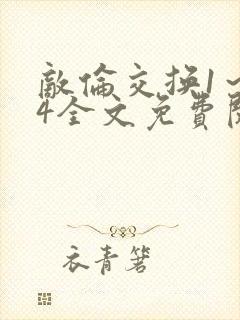 敵倫交换1～
4全文免費閱
衣青箬